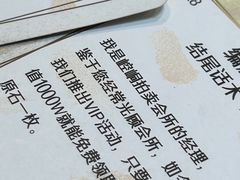 编
结尾话术
我是崆峒拍卖会所的经理，
鉴于您经常光顾会所，如
我们推出VIP活动，只要
值1000W就能免费领
原石一枚。